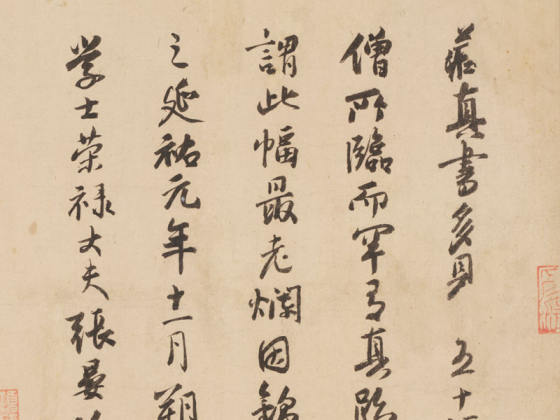 藏真書多見五十
僧所臨而罕有真跡
謂此幅最老爛因錦
之延祐元年十一月朔
學士榮祿大夫張晏